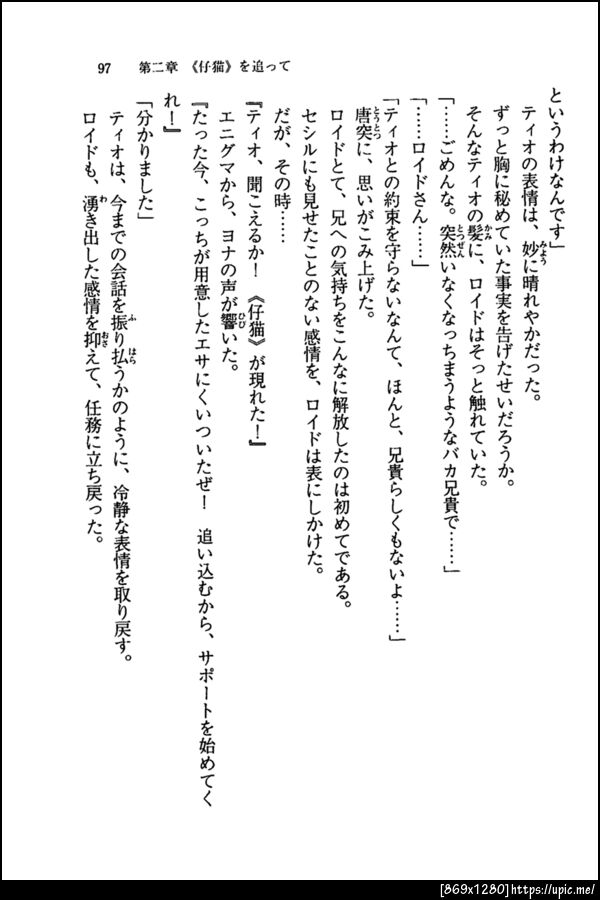 97　第二章　《仔猫》を追って
というわけなんです」
ティオの表情は、妙に晴れやかだった。
ずっと胸に秘めていた事実を告げたせいだろうか。
そんなティオの髪に、ロイドはそっと触れていた。
「……ごめんな。突然いなくなっちまうようなバカ兄貴で……」
「……ロイドさん……」
「ティオとの約束を守らないなんて、ほんと、兄貴らしくもないよ……」
唐突に、思いがこみ上げた。
ロイドとて、兄への気持ちをこんなに解放したのは初めてである。
セシルにも見せたことのない感情を、ロイドは表にしかけた。
だが、その時……
『ティオ、聞こえるか！　《仔猫》が現れた！』
エニグマから、ヨナの声が響いた。
『たった今、こっちが用意したエサにくいついたぜ！　追い込むから、サポートを始めてく
れ！』
「分かりました」
ティオは、今までの会話を振り払うかのように、冷静な表情を取り戻す。
ロイドも、湧き出した感情を抑えて、任務に立ち戻った。
[869x1280]https://upic.me/